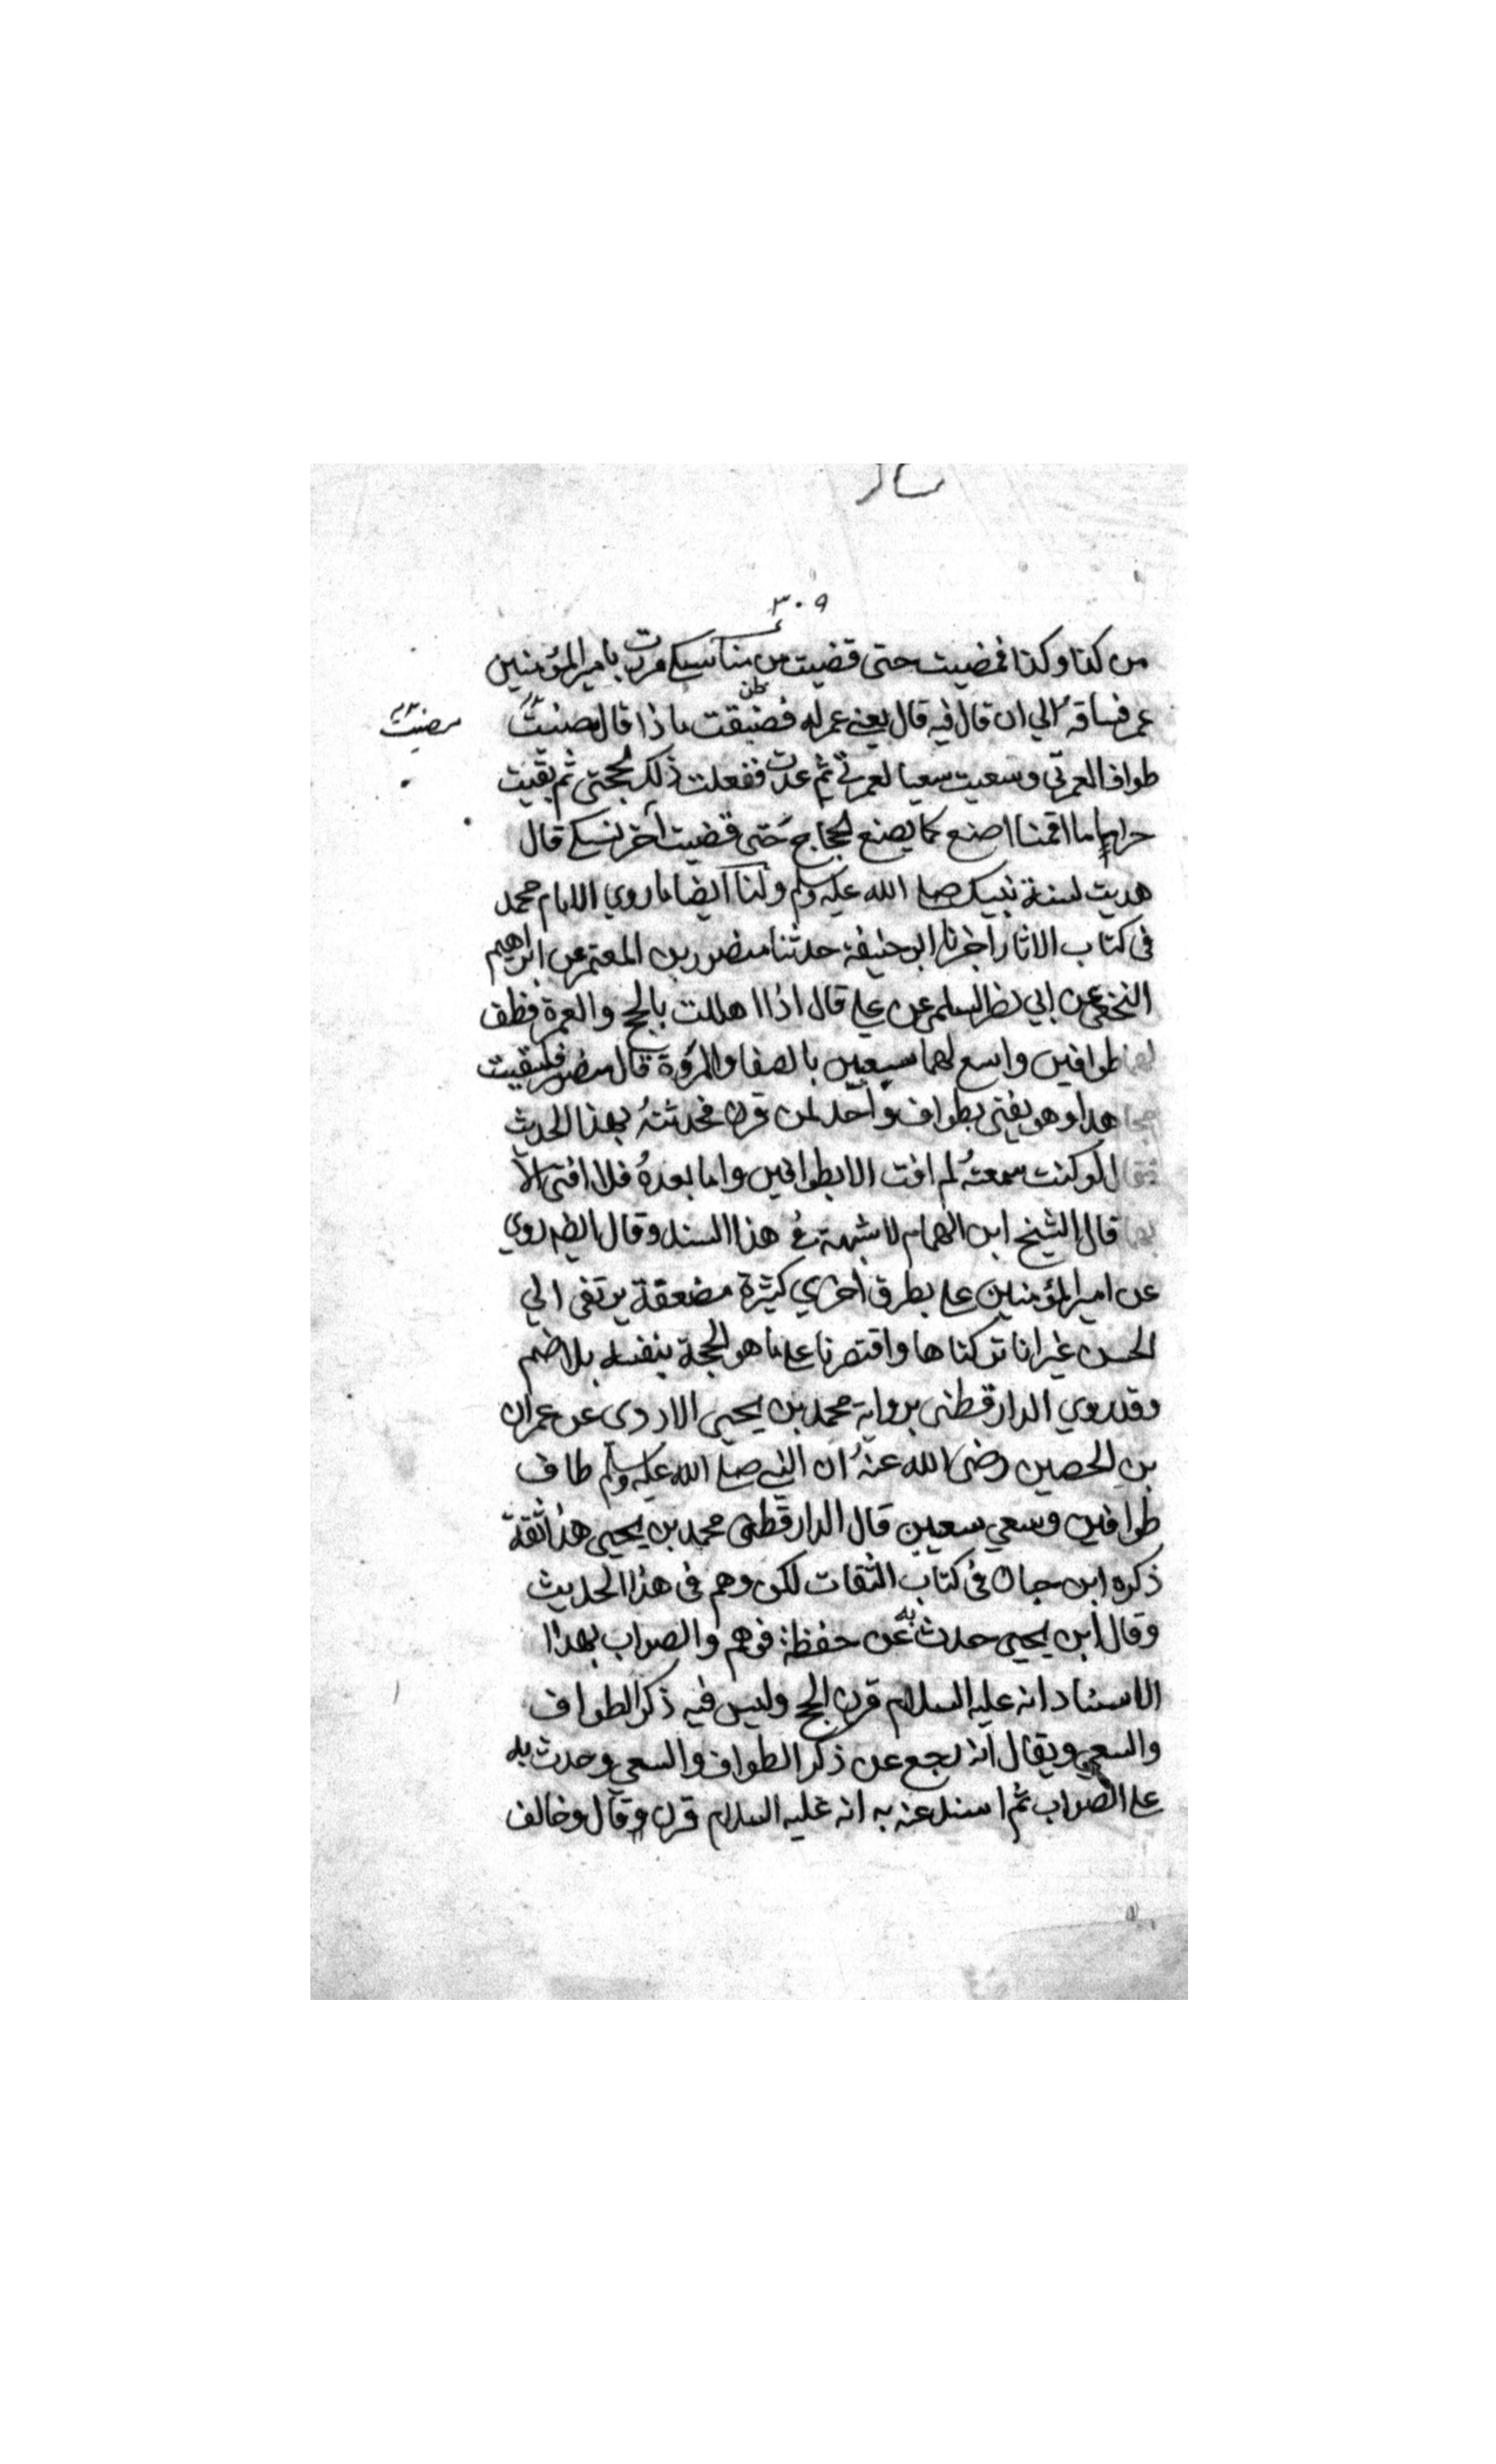 ٣٠٩
من كذا وكذا فمضيت حتى قضيت من مناسكي مررت بامير المؤمنين
عمر فساقه الي ان قال فيه قال يعني عمر له فصنعت ماذا قال مضيت
مضيت
طواف العمرتي وسعيت سعيا لعمرتي ثم عدت ففعلت ذلك لحجتي ثم بقيت
حراما ما اقمنا اصنع كما يصنع الحجاج حتى قضيت آخر نسكي قال
هديت لسنة نبيك صلى الله عليه وسلم ولنا ايضا ما روي الامام محمد
في كتاب الاثار اخبرنا ابو حنيفة حدثنا منصور بن المعتمر عن ابراهيم
النخعي عن ابي نضر السلمي عن علي قال اذا اهللت بالحج والعمرة فطف
لهما طوافين واسع لهما سعيين بالصفا والمروة قال منصور فلقيت
مجاهدا وهو يفتي بطواف واحد لمن قرن فحدثته بهذا الحديث
فقال لو كنت سمعته لم افت الا بطوافين واما بعده فلا افتي الا
بهما قال الشيخ ابن الهمام لا شبهة في هذا السند وقال ايضا روي
عن امير المؤمنين علي بطرق اخري كثيرة مضعفة يرتقى الي
الحسن غير انا تركناها واقتصرنا على ما هو الحجة بنفسه بلا ضم
وقد روي الدارقطنى برواية محمد بن يحيى الازدى عن عمران
بن الحصين رضى الله عنه ان النبي صلى الله عليه وسلم طاف
طوافين وسعي سعيين قال الدارقطنى محمد بن يحيى هذا ثقة
ذكره ابن حبان في كتاب الثقات لكن وهم في هذا الحديث
وقال ابن يحيى حدث به عن حفظه فوهم والصواب بهذا
الاسناد انه عليه السلام قرن الحج وليس فيه ذكر الطواف
والسعي ويقال انه رجع عن ذكر الطواف والسعي وحدث به
على الصواب ثم اسند عنه به انه عليه السلام قرن وقال وخالف